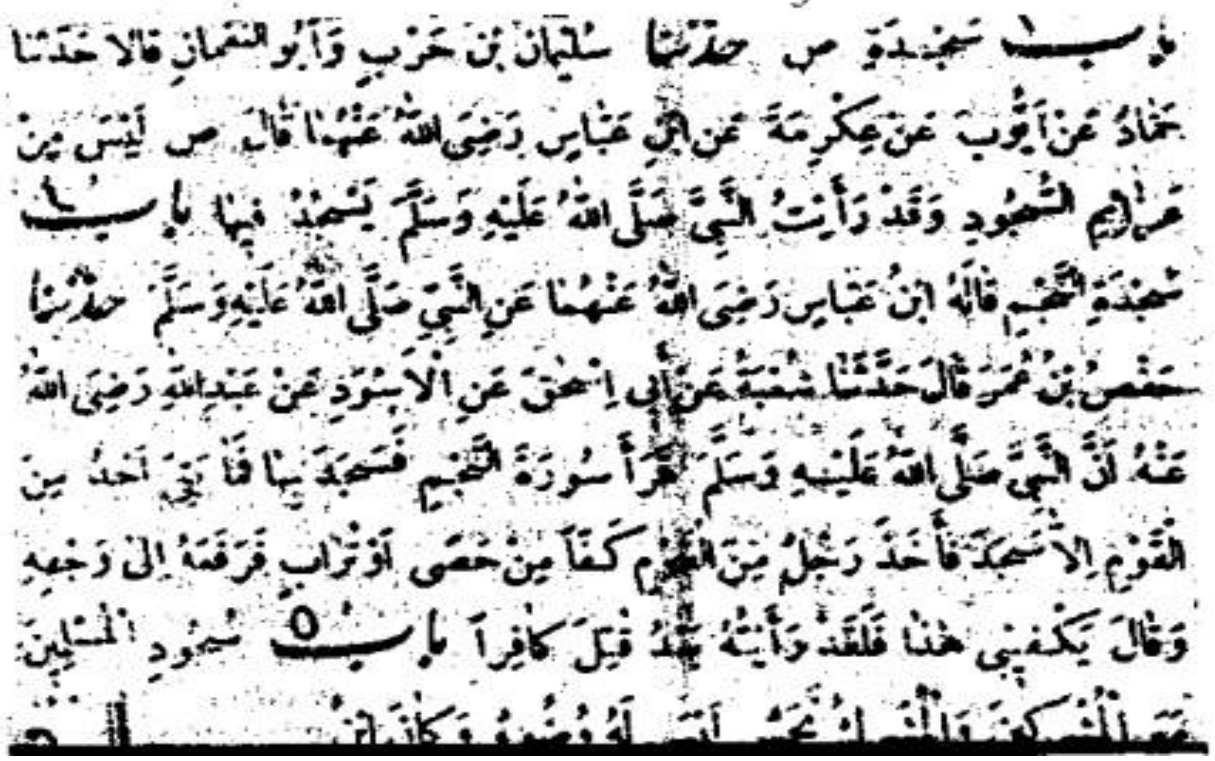 باب سَجْدَةِ ص حدثنا سُلَيْمَانُ بْنُ حَرْبٍ وَأَبُو النُّعْمَانِ قَالَا حَدَّثَنَا
حَمَّادٌ عَنْ أَيُّوبَ عَنْ عِكْرِمَةَ عَنِ ابْنِ عَبَّاسٍ رَضِيَ اللهُ عَنْهُمَا قَالَ ص لَيْسَ مِنْ
عَزَائِمِ السُّجُودِ وَقَدْ رَأَيْتُ النَّبِيَّ صَلَّى اللهُ عَلَيْهِ وَسَلَّمَ يَسْجُدُ فِيهَا باب
سَجْدَةِ النَّجْمِ قَالَهُ ابْنُ عَبَّاسٍ رَضِيَ اللهُ عَنْهُمَا عَنِ النَّبِيِّ صَلَّى اللهُ عَلَيْهِ وَسَلَّمَ حدثنا
حَفْصُ بْنُ عُمَرَ قَالَ حَدَّثَنَا شُعْبَةُ عَنْ أَبِي إِسْحٰقَ عَنِ الْأَسْوَدِ عَنْ عَبْدِ اللهِ رَضِيَ اللهُ
عَنْهُ أَنَّ النَّبِيَّ صَلَّى اللهُ عَلَيْهِ وَسَلَّمَ قَرَأَ سُورَةَ النَّجْمِ فَسَجَدَ بِهَا فَمَا بَقِيَ أَحَدٌ مِنَ
الْقَوْمِ إِلَّا سَجَدَ فَأَخَذَ رَجُلٌ مِنَ الْقَوْمِ كَفًّا مِنْ حَصًى أَوْ تُرَابٍ فَرَفَعَهُ إِلَى وَجْهِهِ
وَقَالَ يَكْفِينِي هٰذَا فَلَقَدْ رَأَيْتُهُ بَعْدُ قُتِلَ كَافِرًا باب ٥ سُجُودِ الْمُسْلِمِينَ
مَعَ الْمُشْرِكِينَ وَالْمُشْرِكُ نَجَسٌ لَيْسَ لَهُ وُضُوءٌ وَكَانَ ابْنُ